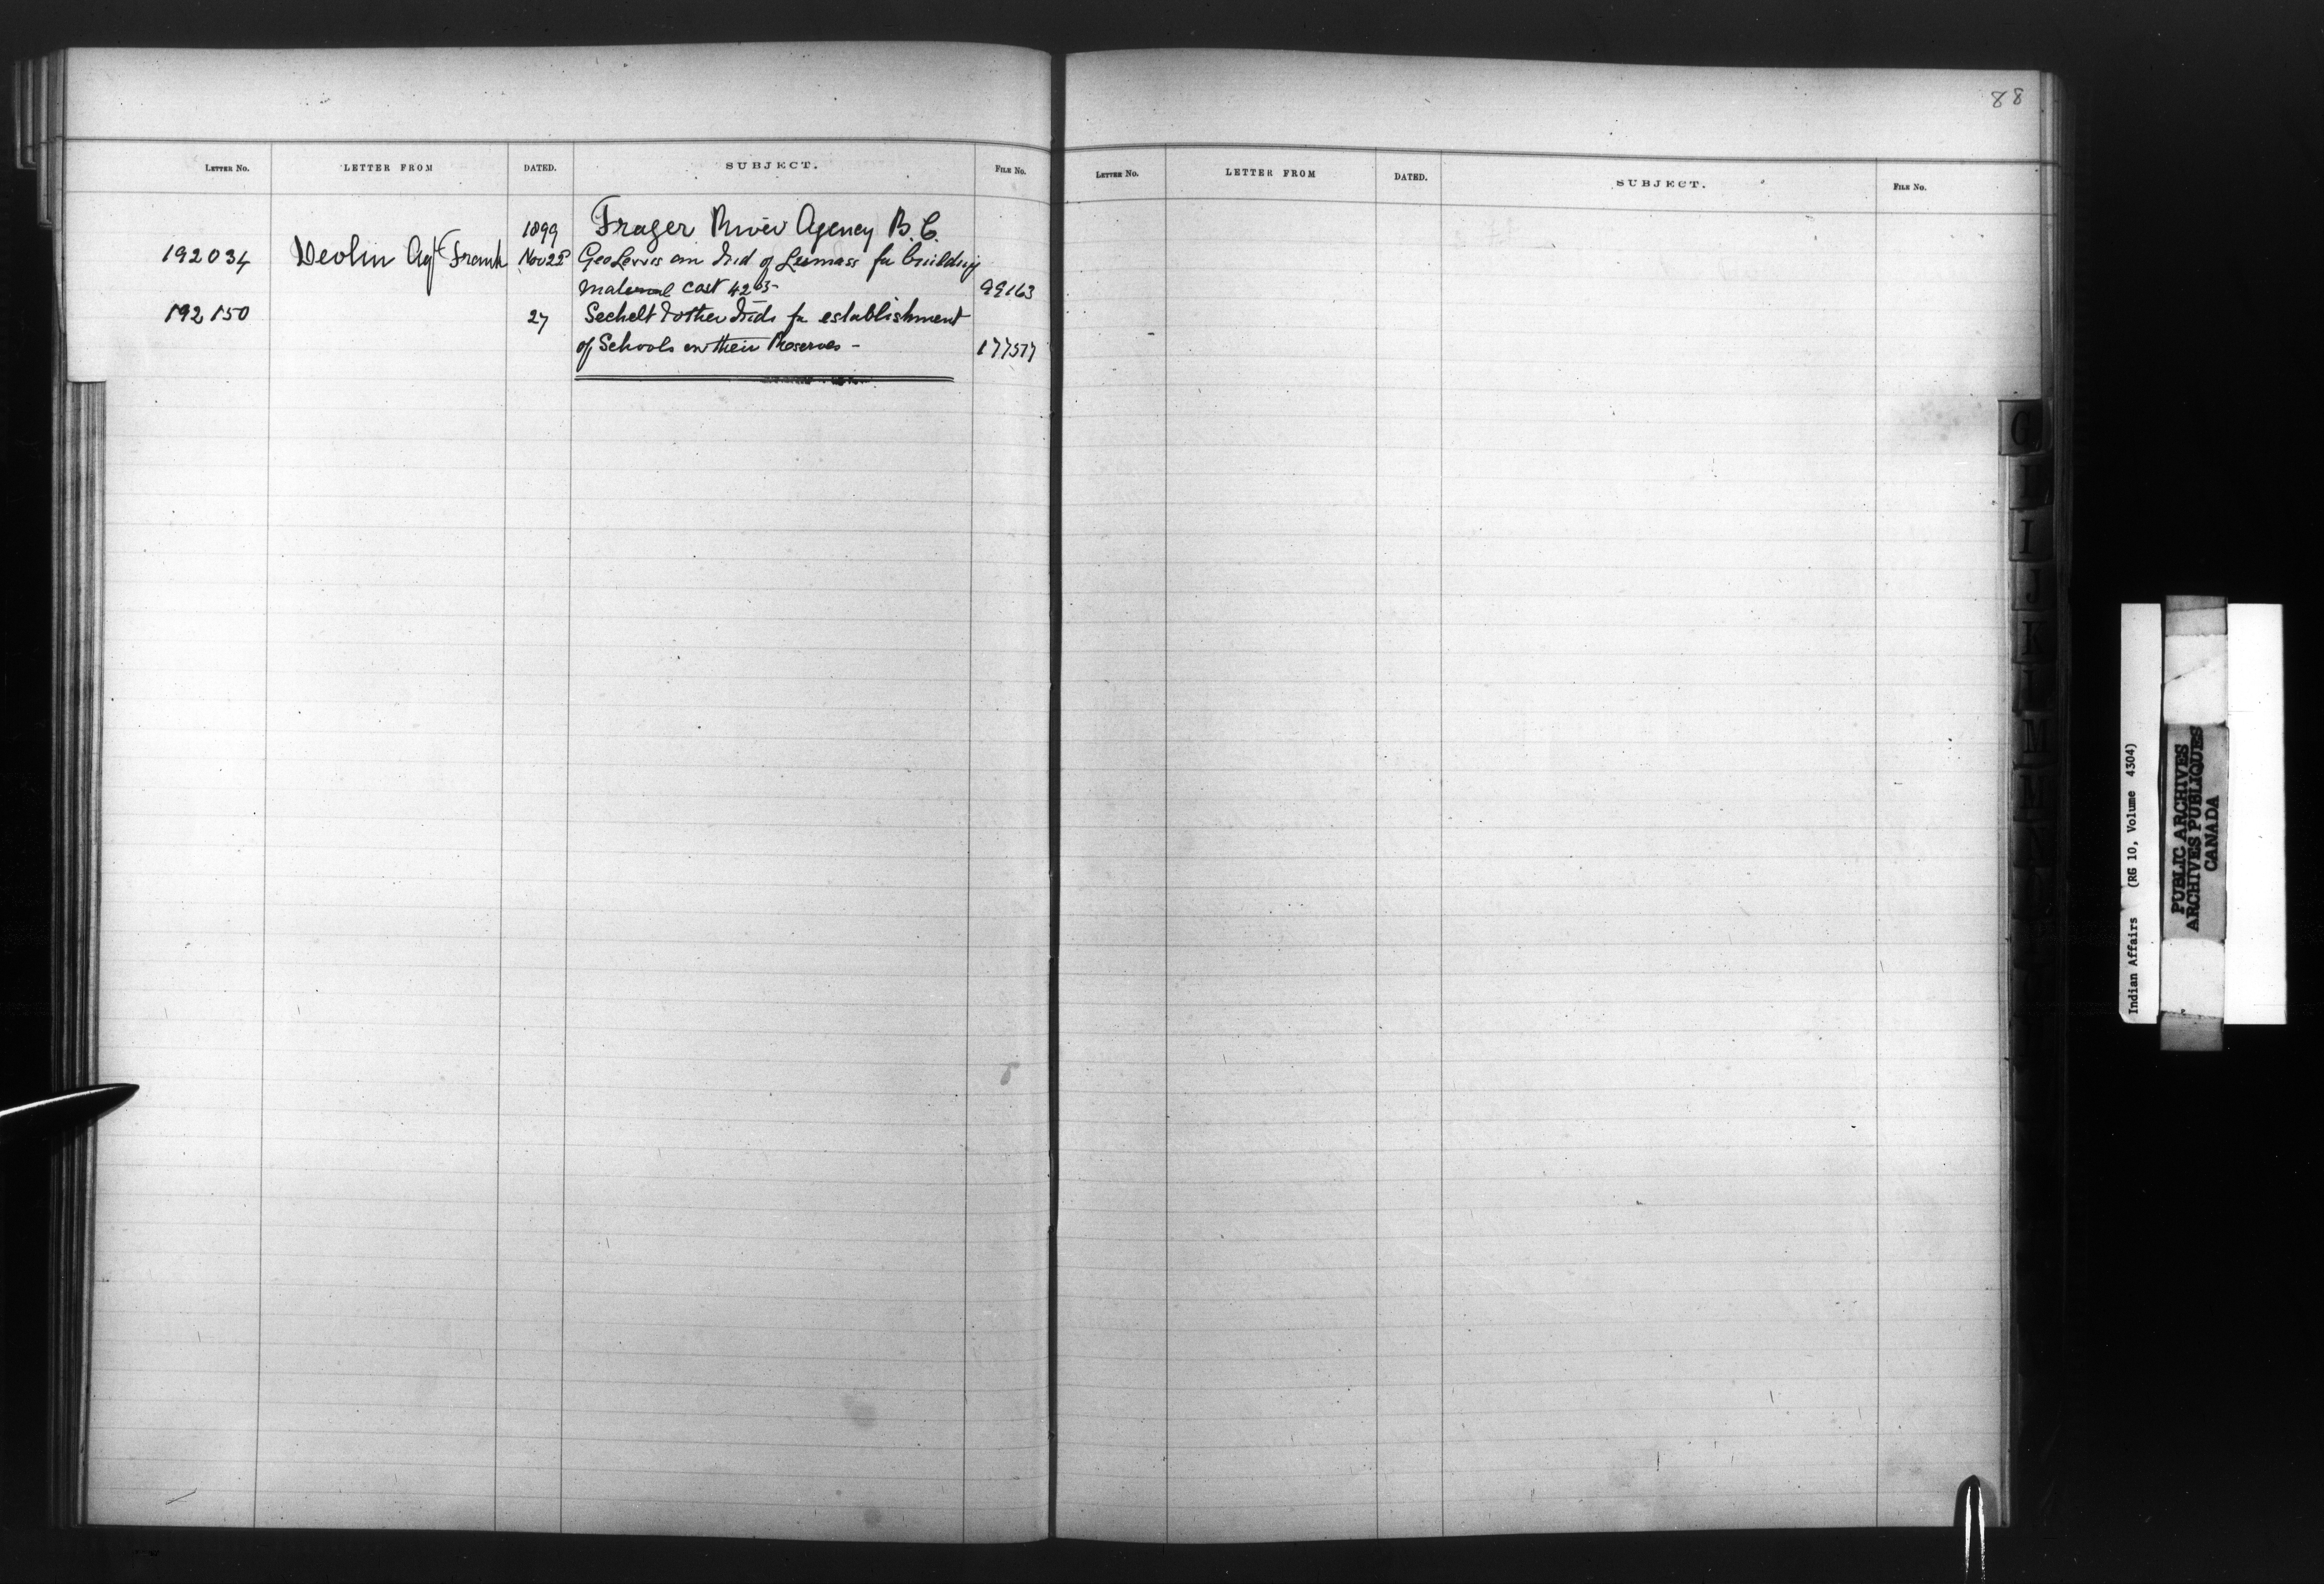 88
LETTER No. LETTER FROM DATED. SUBJECT. FILE No.
1899 Frazer River Agency B.C.
192034 Devlin Agt Frank Nov 22 Geo Lewis an Ind of Sumass for building
material cost 42 99163
192150 27 Sechelt & other Inds for establishment
of Schools on their Reserves - 177577
LETTER No. LETTER FROM DATED. SUBJECT. FILE No.
I
J
K
M
Indian Affairs (RG 10, Volume 4304)
PUBLIC ARCHIVES
ARCHIVES PUBLIQUES
CANADA